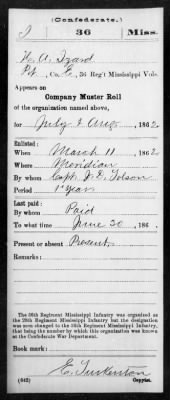 (Confederate.)
I 36 Miss.
H. A. Izard
Pvt, Co. E, 36 Reg't Mississippi Vols.
Appears on
Company Muster Roll
of the organization named above,
for July & Aug, 1862
Enlisted:
When March 11, 1862
Where Meridian
By whom Capt. J. D.
Period 1 year
Last paid:
By whom Paid
To what time June 30, 186
Present or absent Present
Remarks:
The 36th Regiment Mississippi Infantry was organized as
the 29th Regiment Mississippi Infantry but the designation
was soon changed to the 36th Regiment Mississippi Infantry,
that being the number by which this organization was known
at the Confederate War Department.
Book mark:
E.
(642) Copyist.